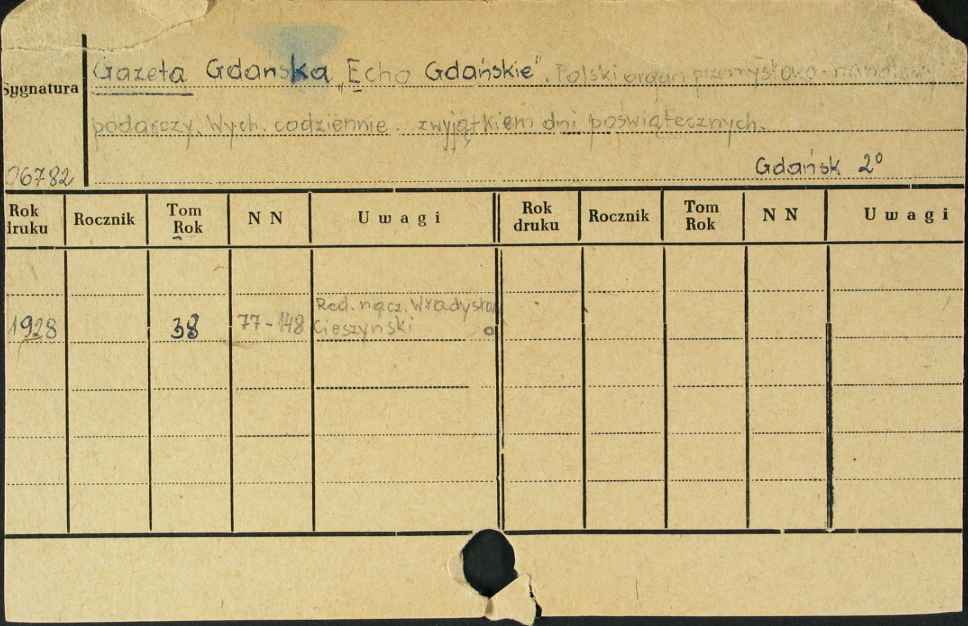 Gazeta Gdańska „Echo Gdańskie". Polski organ przemysłowo-
Sygnatura
podarczy. Wych. codziennie. zwyjątkiem dni poświątecznych.
Gdańsk 2°
06782
Rok druku Rocznik Tom Rok N N Uwagi Rok druku Rocznik Tom Rok N N Uwagi
Red. nacz. Władysław
1928 38 77-148 Cieszyński